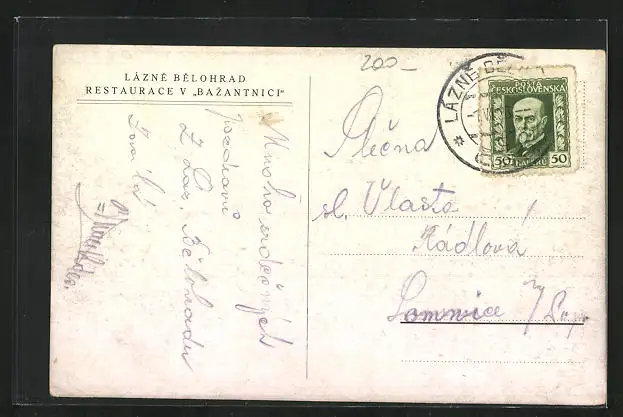 200–
LÁZNĚ BĚLOHRAD
RESTAURACE V „BAŽANTNICI"
LÁZNĚ BĚL
POŠTA
ČESKOSLOVENSKÁ
50 HALÉŘŮ 50
Slečna
sl. Vlasta
Rádlová
Lomnice n/Pop.
Mnoho srdečných
pozdravů
z Láz. Bělohradu